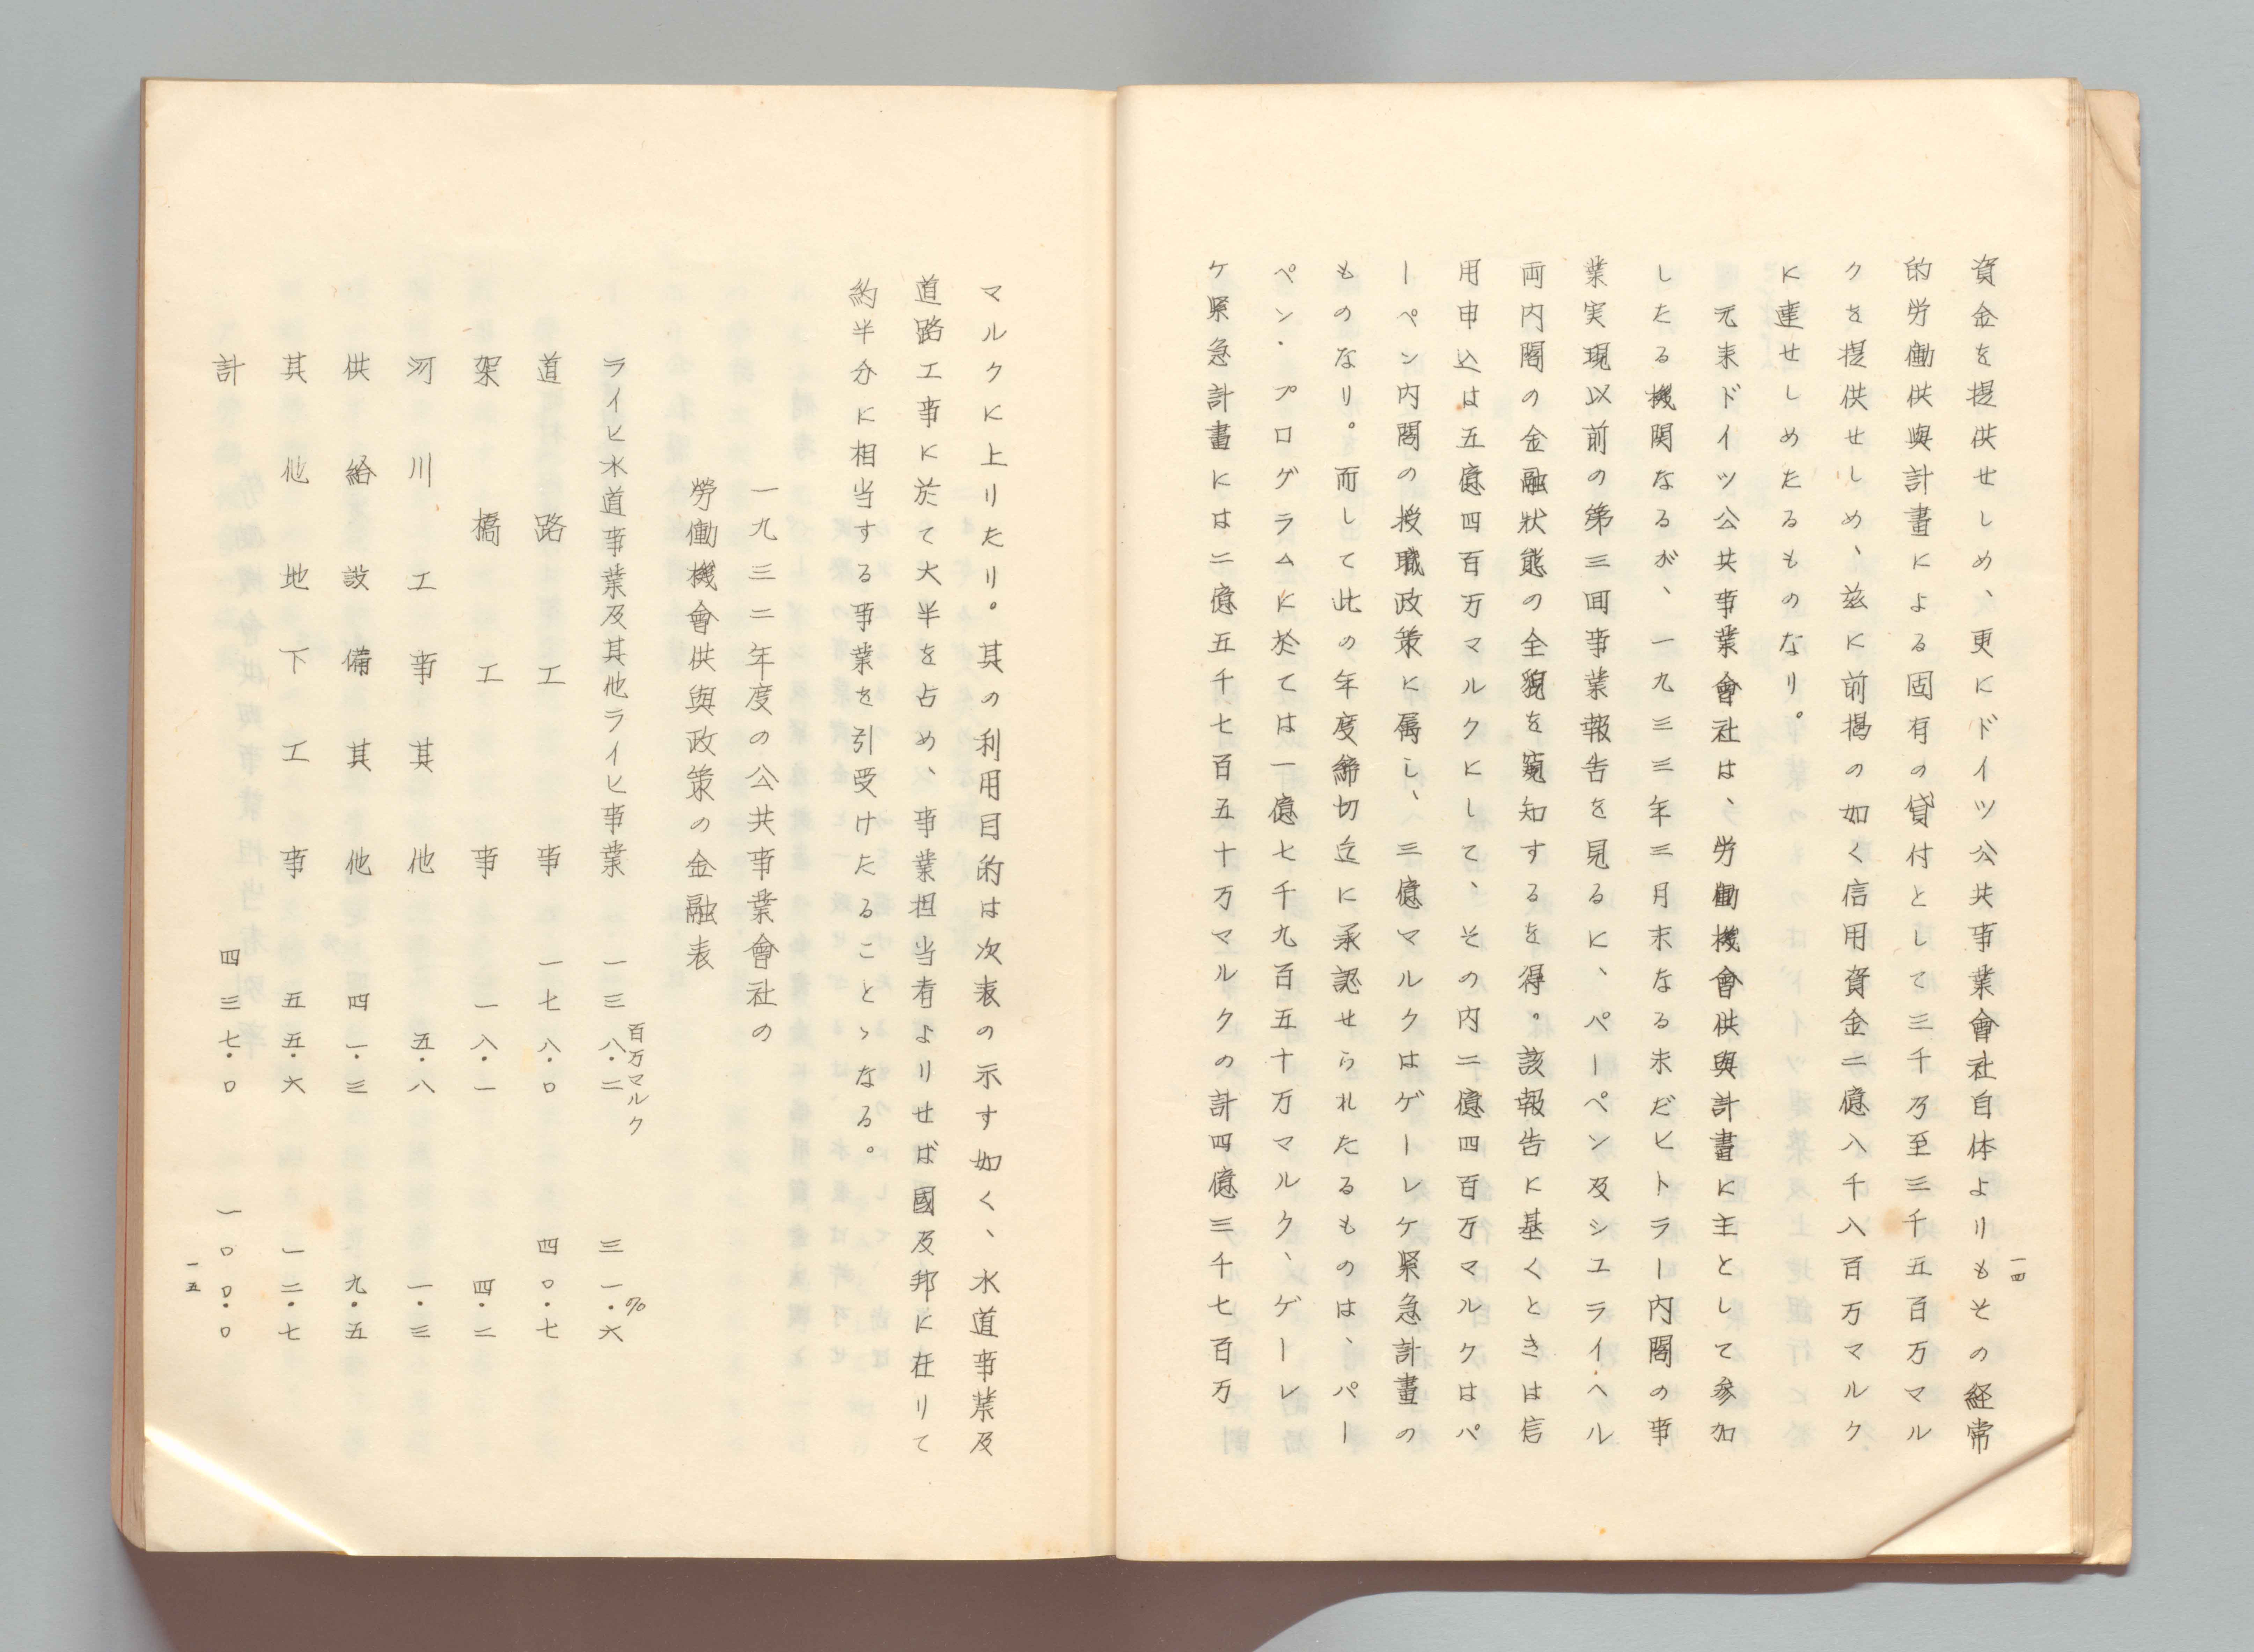 資金を提供せしめ、更にドイツ公共事業會社自体よりもその経常
的労働供與計畫による固有の貸付として三千乃至三千五百万マル
クを提供せしめ、茲に前掲の如く信用資金二億八千八百万マルク
に達せしめたるものなり。
元来ドイツ公共事業會社は、労働機會供與計畫に主として参加
したる機関なるが、一九三三年三月末なる未だヒトラー内閣の事
業実現以前の第三回事業報告を見るに、パーペン及シユライヘル
両内閣の金融狀態の全貌を窺知するを得。該報告に基くときは信
用申込は五億四百万マルクにして、その内二億四百万マルクはパ
ーペン内閣の授職政策に属し、三億マルクはゲーレケ緊急計畫の
ものなり。而して此の年度締切迄に承認せられたるものは、パー
ペン・プログラムに於ては一億七千九百五十万マルク、ゲーレ
ケ緊急計畫には二億五千七百五十万マルクの計四億三千七百万
一四
マルクに上りたり。其の利用目的は次表の示す如く、水道事業及
道路工事に於て大半を占め、事業担当者よりせば國及邦に在りて
約半分に相当する事業を引受けたることゝなる。
一九三二年度の公共事業會社の
勞働機會供與政策の金融表
百万マルク %
ライヒ水道事業及其他ライヒ事業 一三八・二 三一・六
道路工事 一七八・〇 四〇・七
架橋工事 一八・一 四・二
河川工事其他 五・八 一・三
供給設備其他 四一・三 九・五
其他地下工事 五五・六 一二・七
計 四三七・〇 一〇〇・〇
一五